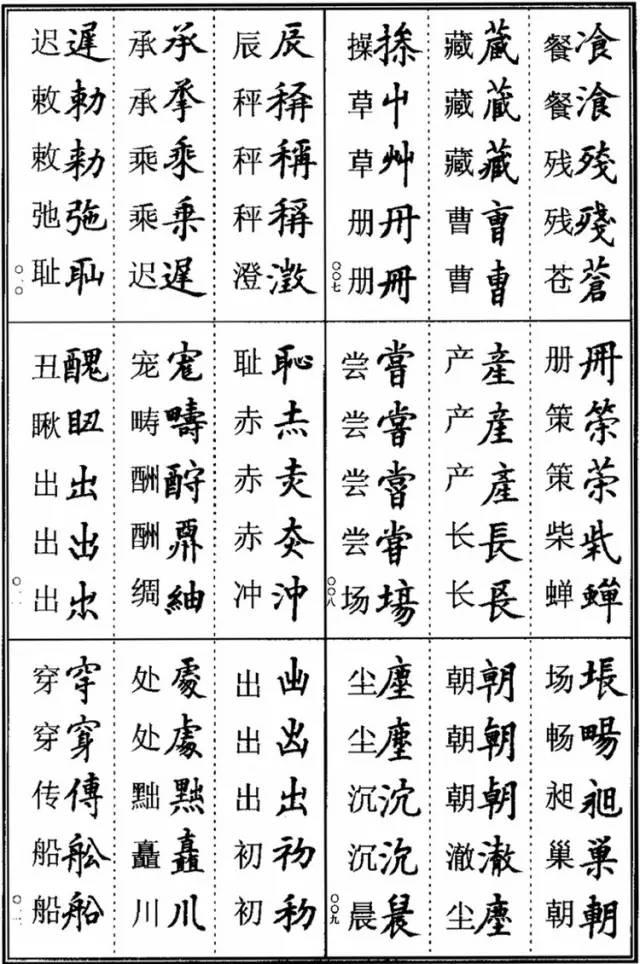 餐飡
餐湌
残殘
残殘
苍蒼
藏藏
藏藏
藏藏
曹曺
曹曹
操
草屮
草艸
册冊
册冊
〇〇七
册冊
策筞
策
柴
蝉蟬
产產
产産
产產
长長
长長
尝嘗
尝嘗
尝嘗
尝嘗
场塲
〇〇八
场
畅畼
昶
巢巣
朝朝
朝朝
朝朝
朝朝
澈澈
尘塵
尘塵
尘塵
沉沉
沉沉
晨
〇〇九
辰辰
秤稱
秤稱
秤稱
澄澂
承承
承
乘乗
乘乗
迟遲
迟遲
敕勅
敕勑
弛
耻耻
〇一〇
耻恥
赤
赤
赤
冲沖
宠
畴疇
酬酧
酬
绸紬
丑醜
瞅
出出
出出
出
出
出
出出
初初
初
处處
处處
黜
矗矗
川川
穿穿
穿穿
传傳
船舩
船船